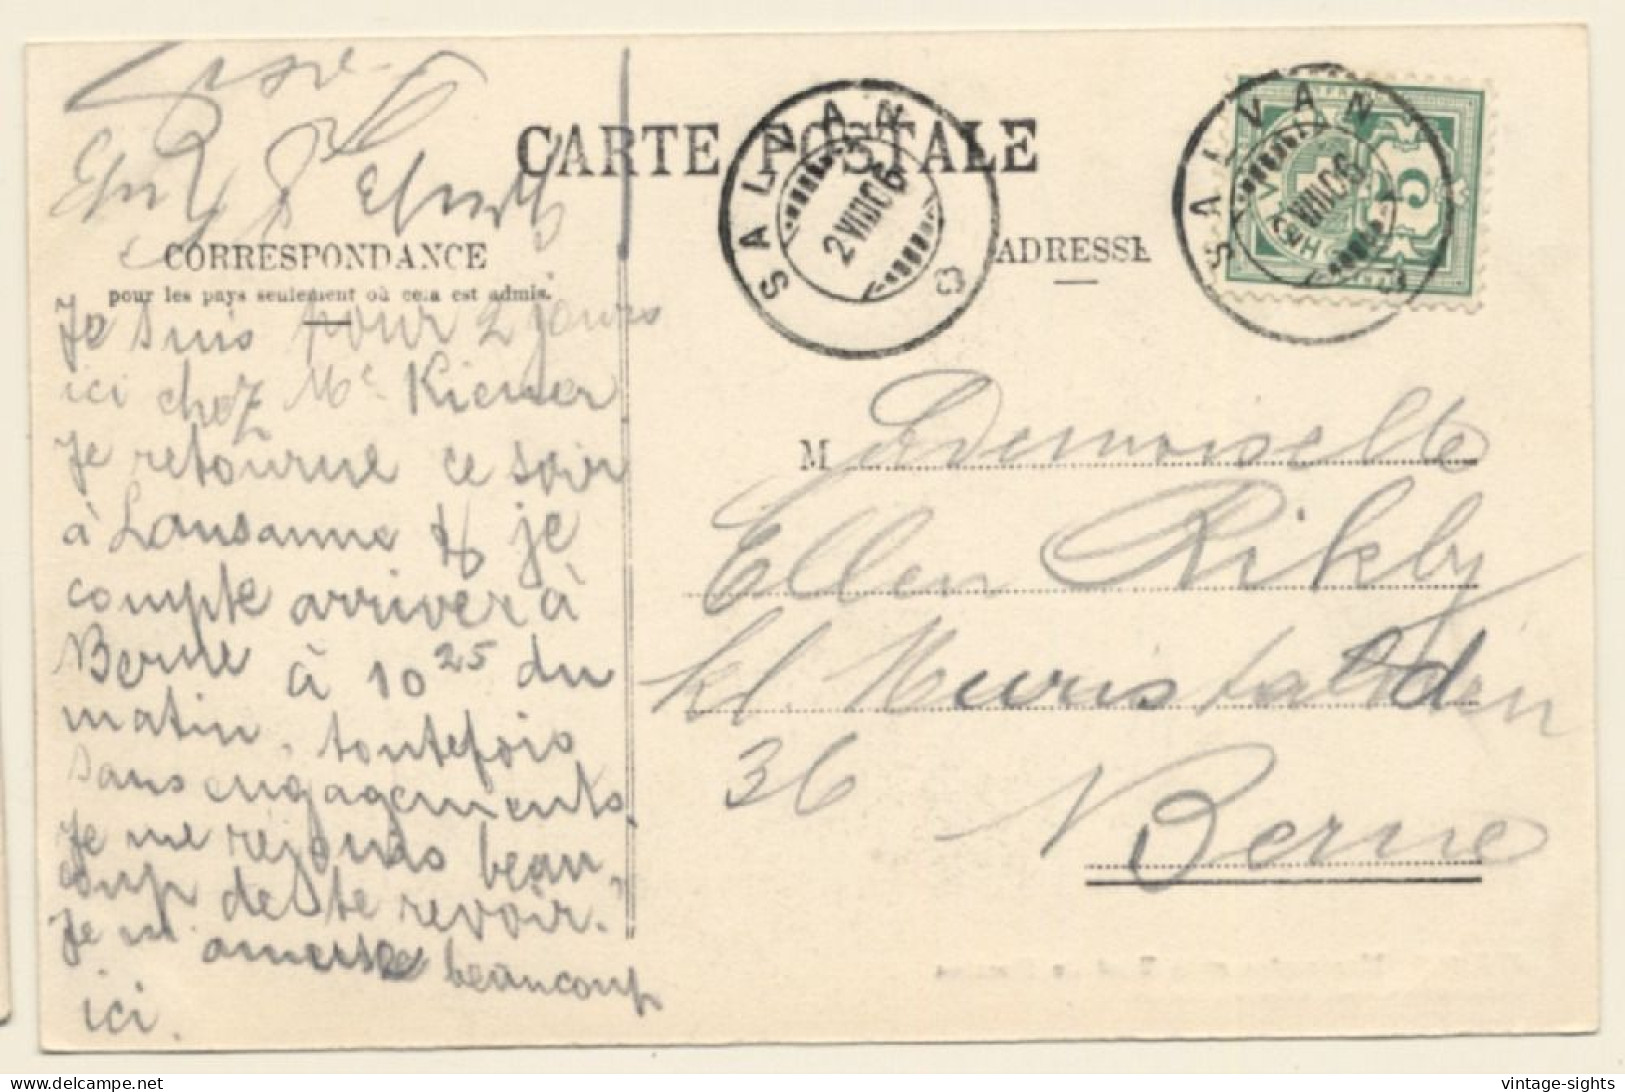 CARTE POSTALE
CORRESPONDANCE
pour les pays seulement où cela est admis.
ADRESSE
SALVAN
2 VIII 06
SALVAN
2 VIII 06
5
Je suis pour 2 jours
ici chez Mc Kiener
Je retourne ce soir
à Lausanne & je
compte arriver à
Berne à 10 25 du
matin, toutefois
sans engagements.
Je me rejouis beau
coup de te revoir.
Je m'amuse beaucoup
ici.
Mademoiselle
Ellen Rikly
kl. Muristalden
36
Berne
vintage-sights